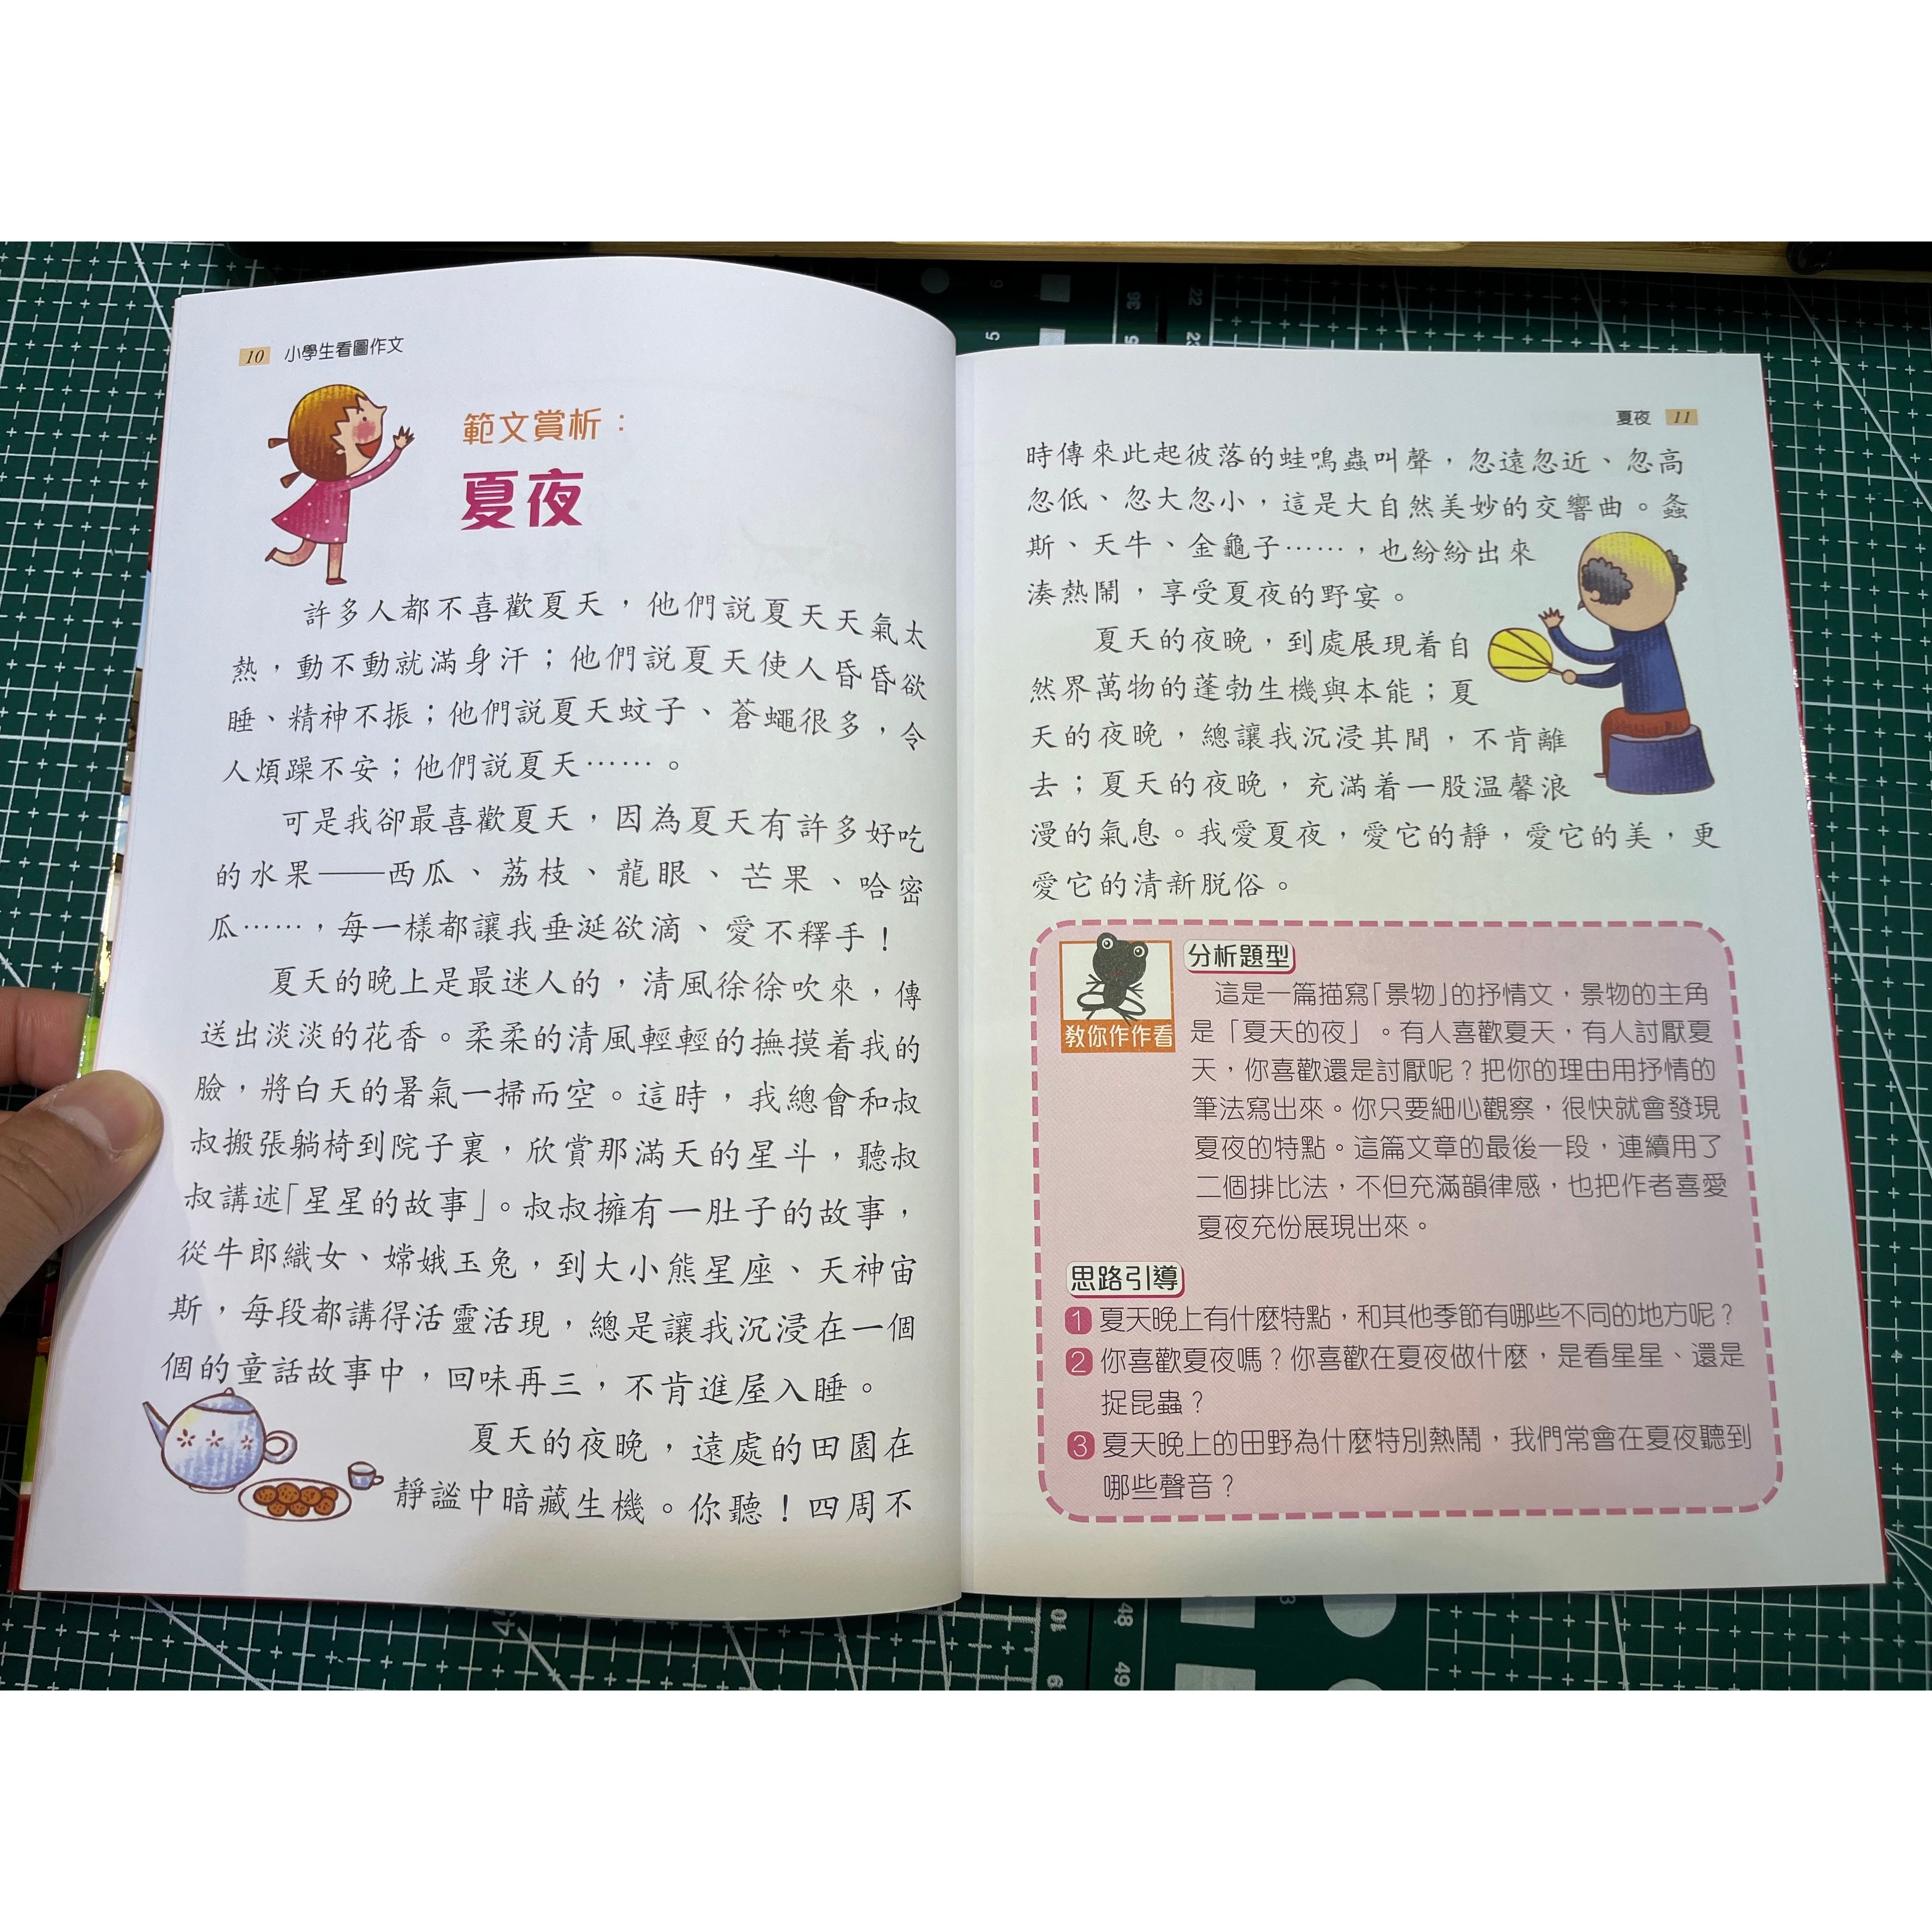 10 小學生看圖作文
範文賞析：
夏夜
許多人都不喜歡夏天，他們說夏天天氣太
熱，動不動就滿身汗；他們說夏天使人昏昏欲
睡、精神不振；他們說夏天蚊子、蒼蠅很多，令
人煩躁不安；他們說夏天……。
可是我卻最喜歡夏天，因為夏天有許多好吃
的水果——西瓜、荔枝、龍眼、芒果、哈密
瓜……，每一樣都讓我垂涎欲滴、愛不釋手！
夏天的晚上是最迷人的，清風徐徐吹來，傳
送出淡淡的花香。柔柔的清風輕輕的撫摸着我的
臉，將白天的暑氣一掃而空。這時，我總會和叔
叔搬張躺椅到院子裏，欣賞那滿天的星斗，聽叔
叔講述「星星的故事」。叔叔擁有一肚子的故事，
從牛郎織女、嫦娥玉兔，到大小熊星座、天神宙
斯，每段都講得活靈活現，總是讓我沉浸在一個
個的童話故事中，回味再三，不肯進屋入睡。
夏天的夜晚，遠處的田園在
靜謐中暗藏生機。你聽！四周不
夏夜 11
時傳來此起彼落的蛙鳴蟲叫聲，忽遠忽近、忽高
忽低、忽大忽小，這是大自然美妙的交響曲。螽
斯、天牛、金龜子……，也紛紛出來
湊熱鬧，享受夏夜的野宴。
夏天的夜晚，到處展現着自
然界萬物的蓬勃生機與本能；夏
天的夜晚，總讓我沉浸其間，不肯離
去；夏天的夜晚，充滿着一股温馨浪
漫的氣息。我愛夏夜，愛它的靜，愛它的美，更
愛它的清新脫俗。
教你作作看
分析題型
這是一篇描寫「景物」的抒情文，景物的主角
是「夏天的夜」。有人喜歡夏天，有人討厭夏
天，你喜歡還是討厭呢？把你的理由用抒情的
筆法寫出來。你只要細心觀察，很快就會發現
夏夜的特點。這篇文章的最後一段，連續用了
二個排比法，不但充滿韻律感，也把作者喜愛
夏夜充份展現出來。
思路引導
1 夏天晚上有什麼特點，和其他季節有哪些不同的地方呢？
2 你喜歡夏夜嗎？你喜歡在夏夜做什麼，是看星星、還是
捉昆蟲？
3 夏天晚上的田野為什麼特別熱鬧，我們常會在夏夜聽到
哪些聲音？